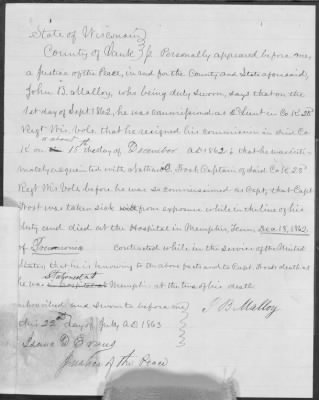 State of Wisconsin }
County of Sauk } ss Personally appeared before me,
a Justice of the Peace, in and for the County and State aforesaid,
John B. Malloy, who being duly sworn, says that on the
1st day of Sept 1862, he was commissioned as Lieut in Co K 23d
Regt Wis. Vols. that he resigned his commission in said Co.
K on or about 15th day of December AD 1862: that he was inti-
mately acquainted with Nathan Frost Captain of said Co. K 23d
Regt Wis Vols before he was so commissioned as Capt, that Capt
Frost was taken sick from exposure while in the line of his
duty and died at the Hospital in Memphis Tenn, Dec 18, 1862.
of Pneumonia contracted while in the service of the United
States, that he is knowing to the above facts and to Capt. Frosts death as
he was stationed at Memphis at the time of his death
subscribed and sworn to before me } J B Malloy
this 22nd day of July AD 1863 }
D Evans }
Justice of the Peace